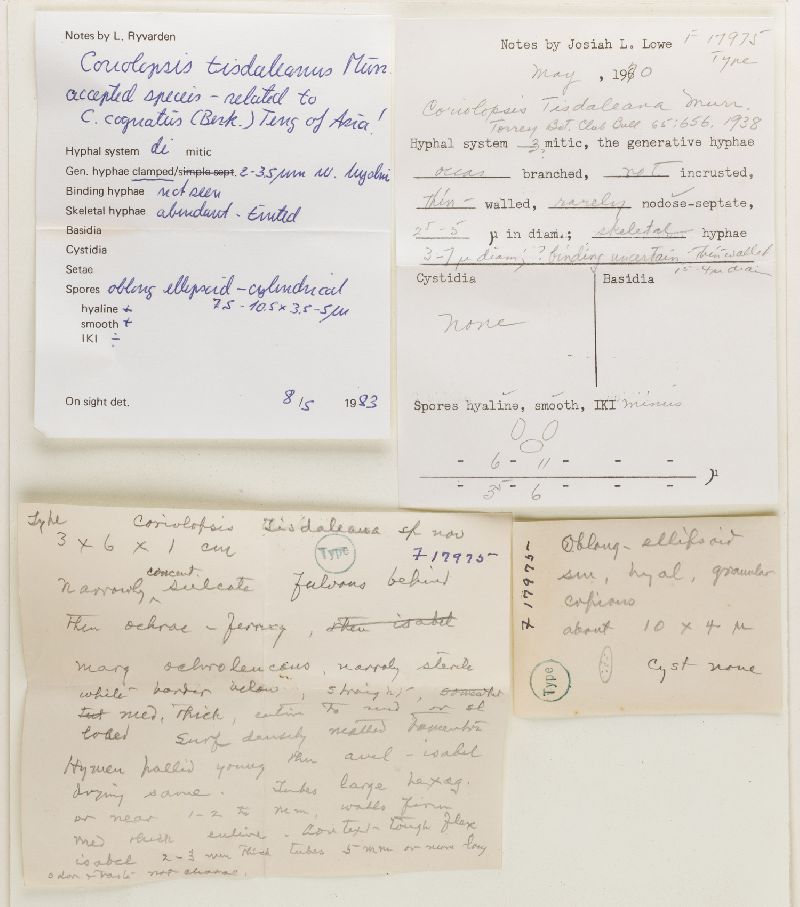 Notes by L. Ryvarden
Coriolopsis tisdaleanus Murr.
accepted species - related to
C. cognatus (Berk.) Teng of Asia!
Hyphal system di mitic
Gen. hyphae clamped/simple sept. 2-3.5 µm w. hyalin
Binding hyphae not seen
Skeletal hyphae abundant -
Basidia
Cystidia
Setae
Spores oblong ellipsoid - cylindrical
hyaline + 7.5 - 10.5 x 3.5 - 5 µm
smooth +
IKI ÷
On sight det. 8/5 1983
Notes by Josiah L. Lowe F 17975
Type
May , 1960
Coriolopsis Tisdaleana Murr.
Torrey Bot. Club Bull 65:656, 1938
Hyphal system 3 mitic, the generative hyphae
occas branched, not incrusted,
thin - walled, rarely nodose-septate,
2.5-5 µ in diam.; skeletal hyphae
3-7 µ diam; ? binding uncertain - thin walled
1.5-4 µ diam
Cystidia Basidia
none
Spores hyaline, smooth, IKI minus
- 6 - 11 - - -
- 3.5 - 6 - - - µ
Type Coriolopsis Tisdaleana sp nov
3 x 6 x 1 cm Type F 17975
Narrowly concent. sulcate fulvous behind
then ochrac - ferrug, then isabel
marg ochroleucous, narroly sterile
white border below, straight,
med. thick, entire to und or sl
lobed Surf densely matted tomentose
Hymen pallid young then avel - isabel
drying same. Tubes large hexag.
or near 1-2 to mm, walls firm
med thick entire. Context tough flex
isabel 2-3 mm thick tubes 5 mm or more long
odor & taste not charac.
F 17975
Type
Oblong - ellipsoid
sm, hyal, granular
copious
about 10 x 4 µ
Cyst none